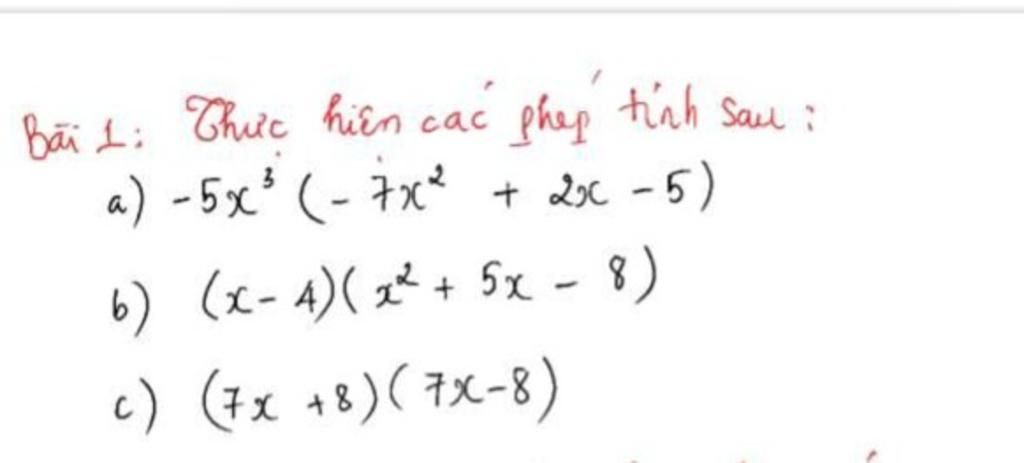 Bài 1: Thực hiện các phép tính sau:
a) -5x³ (- 7x² + 2x - 5)
b) (x - 4)( x² + 5x - 8)
c) (7x + 8)( 7x - 8)